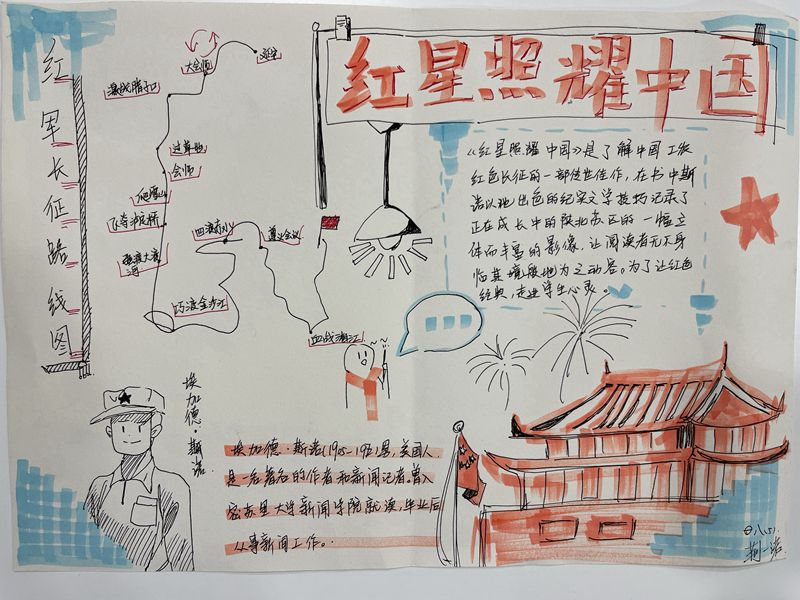 红星照耀中国
红军长征路线图
延安
大会师
激战腊子口
过草地
会师
爬雪山
飞夺泸定桥
强渡大渡河
巧渡金沙江
四渡赤水
遵义会议
血战湘江
《红星照耀中国》是了解中国工农
红色长征的一部传世佳作，在书中斯
诺以他出色的纪实文学技巧记录了
正在成长中的陕北苏区的一幅立
体而丰富的影像，让阅读者无不身
临其境般地为之动容。为了让红色
经典，走进学生心灵。
埃加德·斯诺
埃加德·斯诺(1905-1972)男，美国人
是一名著名的作者和新闻记者。曾入
密苏里大学新闻学院就读，毕业后
从事新闻工作。